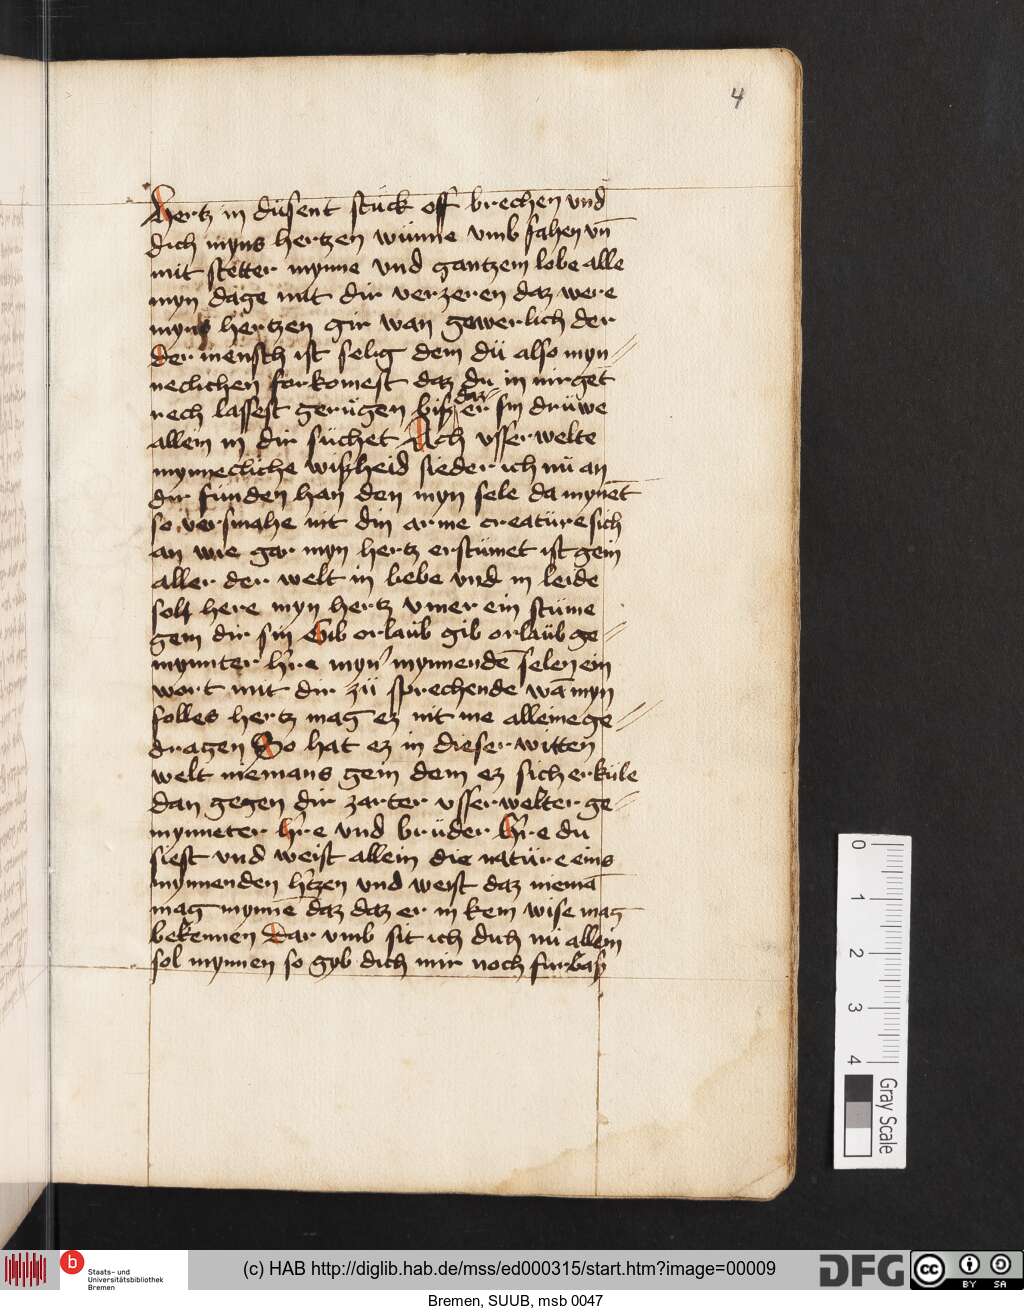 4
hertz in düsent stück off brechen vnd
dich myns hertzen wünne vmb fahen vn̄
mit stetter mynne vnd gantzem lobe alle
myn dage mit dir verzeren daz were
myns hertzen gir wan gewerlich der
der mensch ist selig dem dü also myn⸗
neclichen forkomest daz du in nirget
rech lassest gerügen bisz daz er sin drüwe
allein in dir süchet Ach vsserwelte
mynnecliche wiszheid sieder ich nü an
dir fünden han den myn sele da mynet
so versmahe nit din arme creatüre sich
an wie gar myn hertz erstümet ist gein
aller der welt in liebe vnd in leide
solt here myn hertz vmer ein stüme
gein dir sin Gib orlaüb gib orlaüb ge⸗
mynnter h̄re myn' mynnendē selen ein
wort mit dir zü sprechende wā myn
folles hertz mag ez nit me alleine ge⸗
dragen So hat ez in dieser witten
welt niemans gein dem ez sich erküle
dan gegen dir zarter vsserwelter ge⸗
mynneter h̄re vnd brüder h̄re du
siest vnd weist allein die natüre eins
mynnenden h̄tzen vnd weist daz niemā
mag mynnē daz daz er in kein wise mag
bekennen Dar vmb sit ich dich nü allein
sol mynnen so gyb dich mir noch furbasz
0
1
2
3
4
Gray Scale
b Staats- und
Universitätsbibliothek
Bremen
(c) HAB http://diglib.hab.de/mss/ed000315/start.htm?image=00009
DFG
cc BY SA
Bremen, SUUB, msb 0047